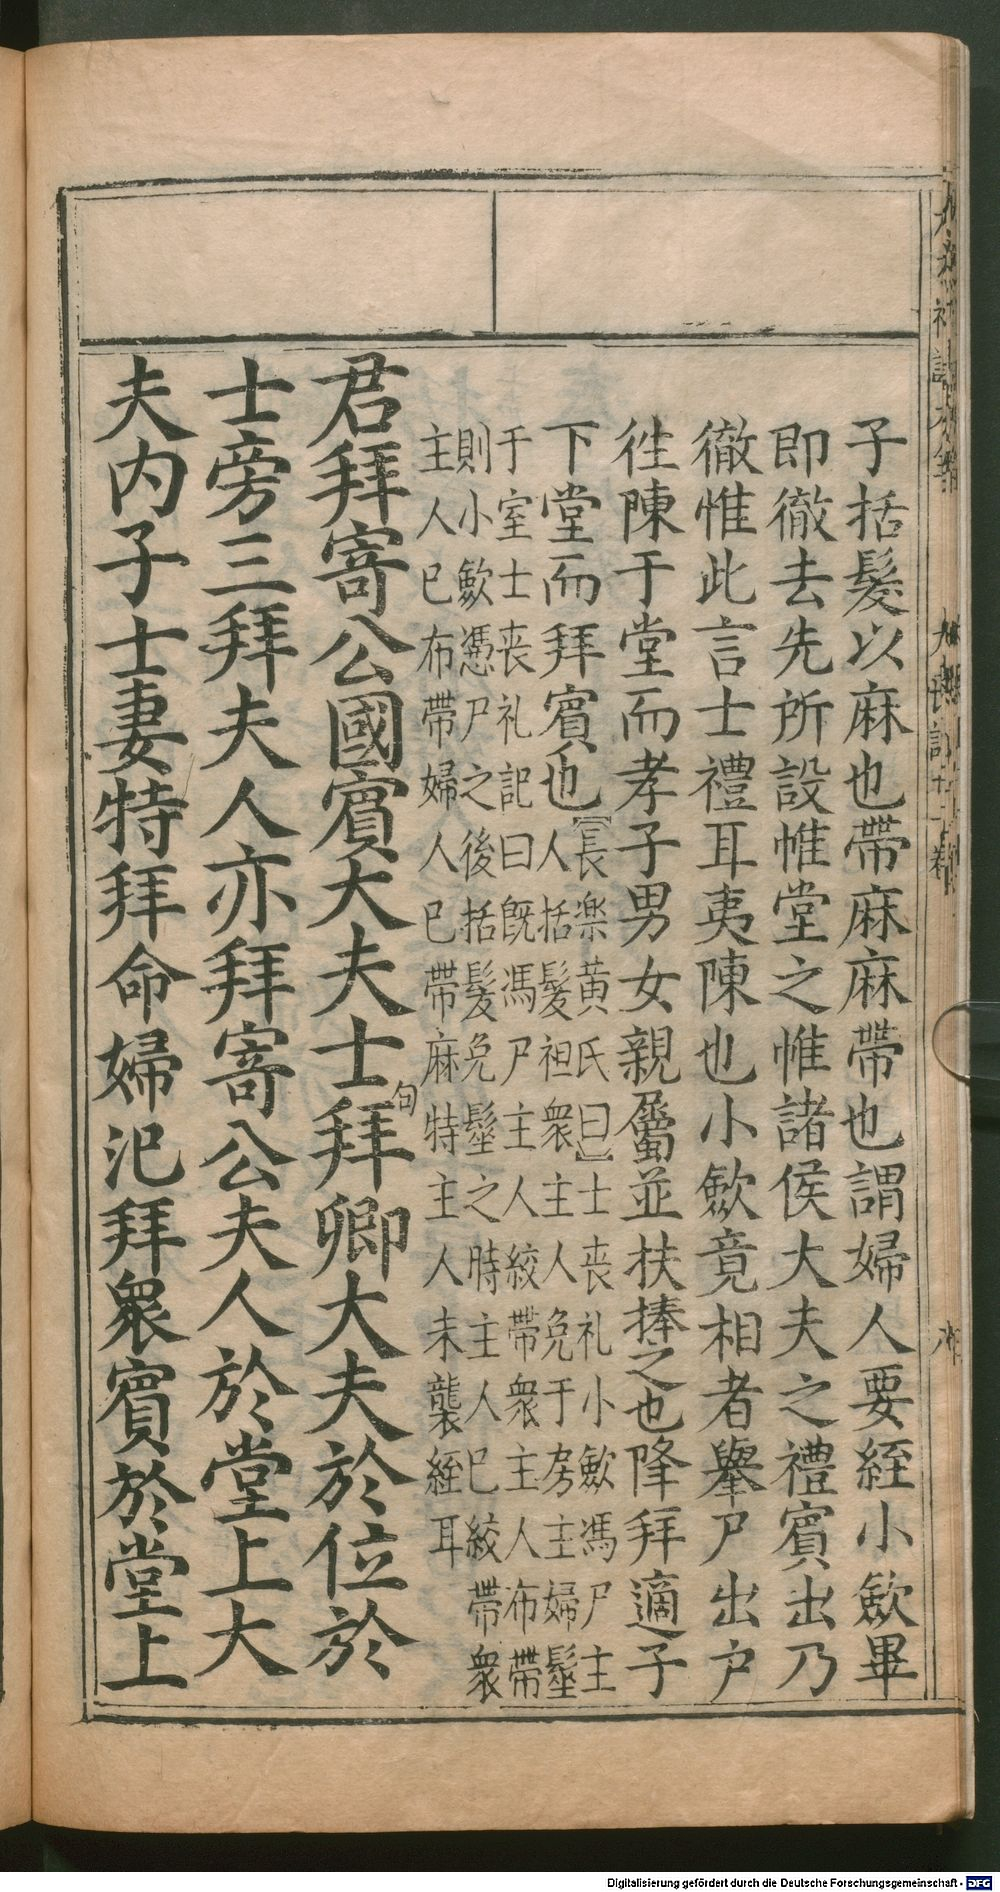 子括髮以麻也帶麻麻帶也謂婦人要絰小斂畢
即徹去先所設帷堂之帷諸侯大夫之禮賓出乃
徹帷此言士禮耳夷陳也小斂竟相者舉尸出户
徃陳于堂而孝子男女親屬並扶捧之也降拜適子
下堂而拜賓也【長楽黄氏曰】士丧礼小斂馮尸主
人括髮袒衆主人免于房主婦髽
于室士丧礼記曰旣馮尸主人絞帶衆主人布帶
則小斂馮尸之後括髮免髽之時主人巳絞帶衆
主人巳布帶婦人巳帶麻特主人未襲絰耳
君拜寄公國賓大夫士句拜卿大夫於位於
士旁三拜夫人亦拜寄公夫人於堂上大
夫内子士妻特拜命婦氾拜衆賓於堂上
Digitalisierung gefördert durch die Deutsche Forschungsgemeinschaft - DFG